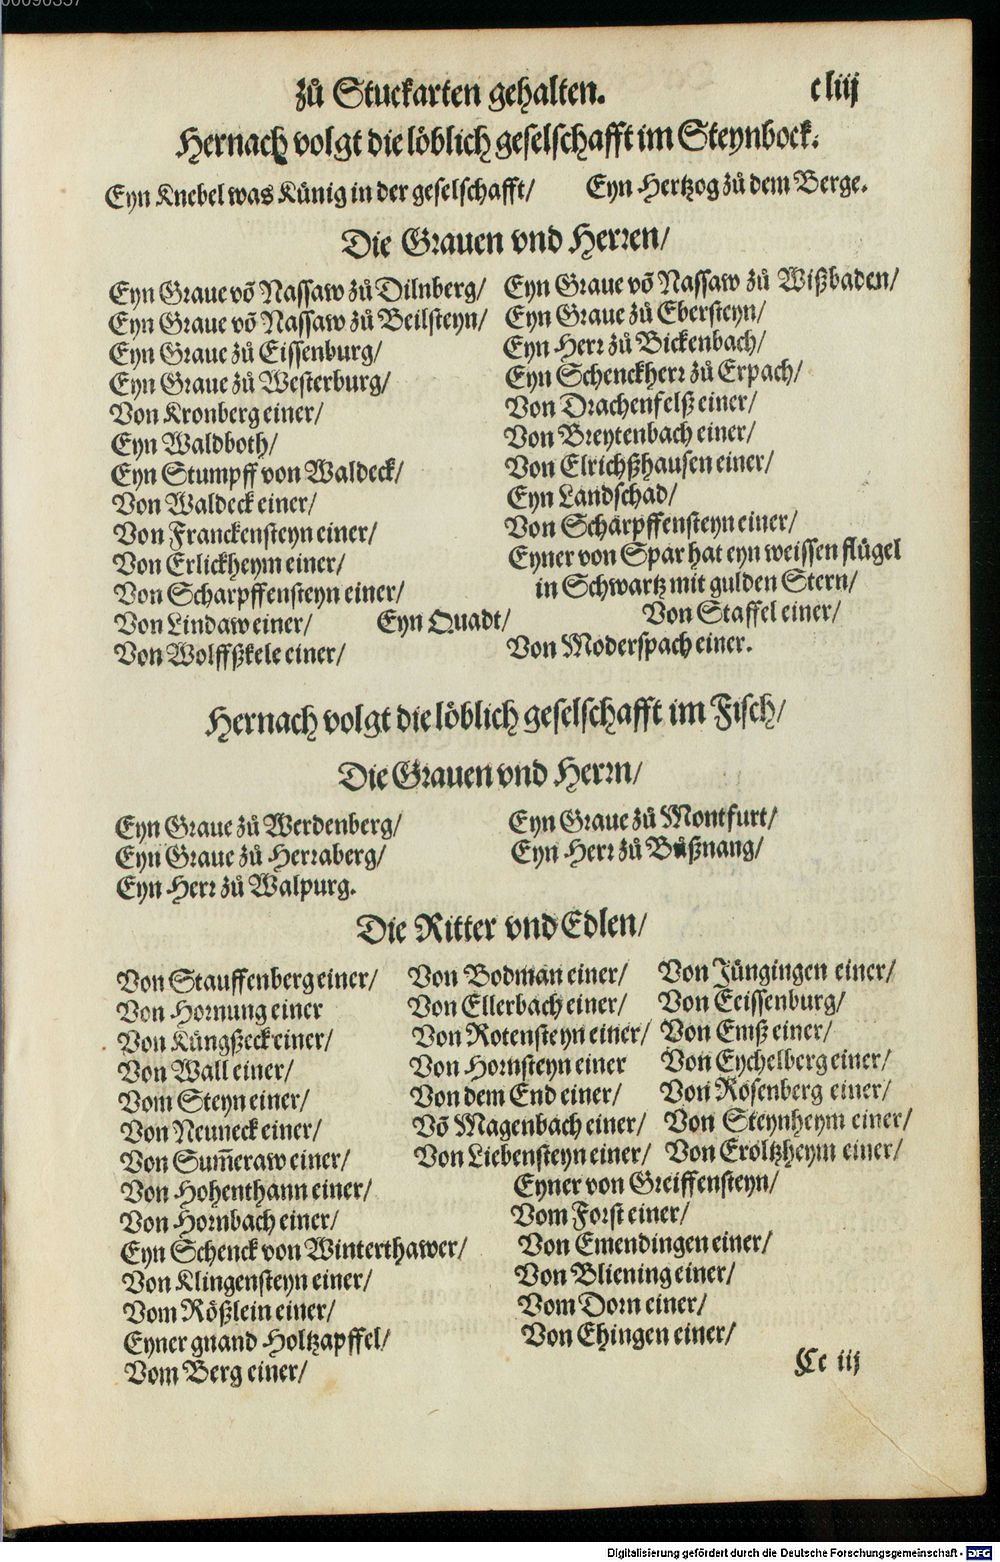 00090357
zů Stuckarten gehalten. cliij
Hernach volgt die löblich geselschafft im Steynbock.
Eyn Knebel was Künig in der geselschafft/ Eyn Hertzog zů dem Berge.
Die Grauen vnd Herren/
Eyn Graue võ Nassaw zů Dilnberg/ Eyn Graue võ Nassaw zů Wißbaden/
Eyn Graue võ Nassaw zů Beilsteyn/ Eyn Graue zů Ebersteyn/
Eyn Graue zů Eissenburg/ Eyn Herr zů Bickenbach/
Eyn Graue zů Westerburg/ Eyn Schenckherr zů Erpach/
Von Kronberg einer/ Von Drachenfelß einer/
Eyn Waldboth/ Von Breytenbach einer/
Eyn Stumpff von Waldeck/ Von Elrichßhausen einer/
Von Waldeck einer/ Eyn Landschad/
Von Franckensteyn einer/ Von Schärpffensteyn einer/
Von Erlickheym einer/ Eyner von Spar hat eyn weissen flügel
Von Scharpffensteyn einer/ in Schwartz mit gulden Stern/
Von Lindaw einer/ Eyn Quadt/ Von Staffel einer/
Von Wolffßkele einer/ Von Moderspach einer.
Hernach volgt die löblich geselschafft im Fisch/
Die Grauen vnd Herrn/
Eyn Graue zů Werdenberg/ Eyn Graue zů Montfurt/
Eyn Graue zů Herraberg/ Eyn Herr zů Bůßnang/
Eyn Herr zů Walpurg.
Die Ritter vnd Edlen/
Von Stauffenberg einer/ Von Bodman einer/ Von Jüngingen einer/
Von Hornung einer Von Ellerbach einer/ Von Eeissenburg/
Von Küngßeck einer/ Von Rotensteyn einer/ Von Emß einer/
Von Wall einer/ Von Hornsteyn einer Von Eychelberg einer/
Vom Steyn einer/ Von dem End einer/ Von Rosenberg einer/
Von Neuneck einer/ Võ Magenbach einer/ Von Steynheym einer/
Von Sum̃eraw einer/ Von Liebensteyn einer/ Von Eroltzheym einer/
Von Hohenthann einer/ Eyner von Greiffensteyn/
Von Hornbach einer/ Vom Forst einer/
Eyn Schenck von Winterthawer/ Von Emendingen einer/
Von Klingensteyn einer/ Von Bliening einer/
Vom Rößlein einer/ Vom Dorn einer/
Eyner gnand Holtzapffel/ Von Ehingen einer/
Vom Berg einer/
Cc iij
Digitalisierung gefördert durch die Deutsche Forschungsgemeinschaft - DFG